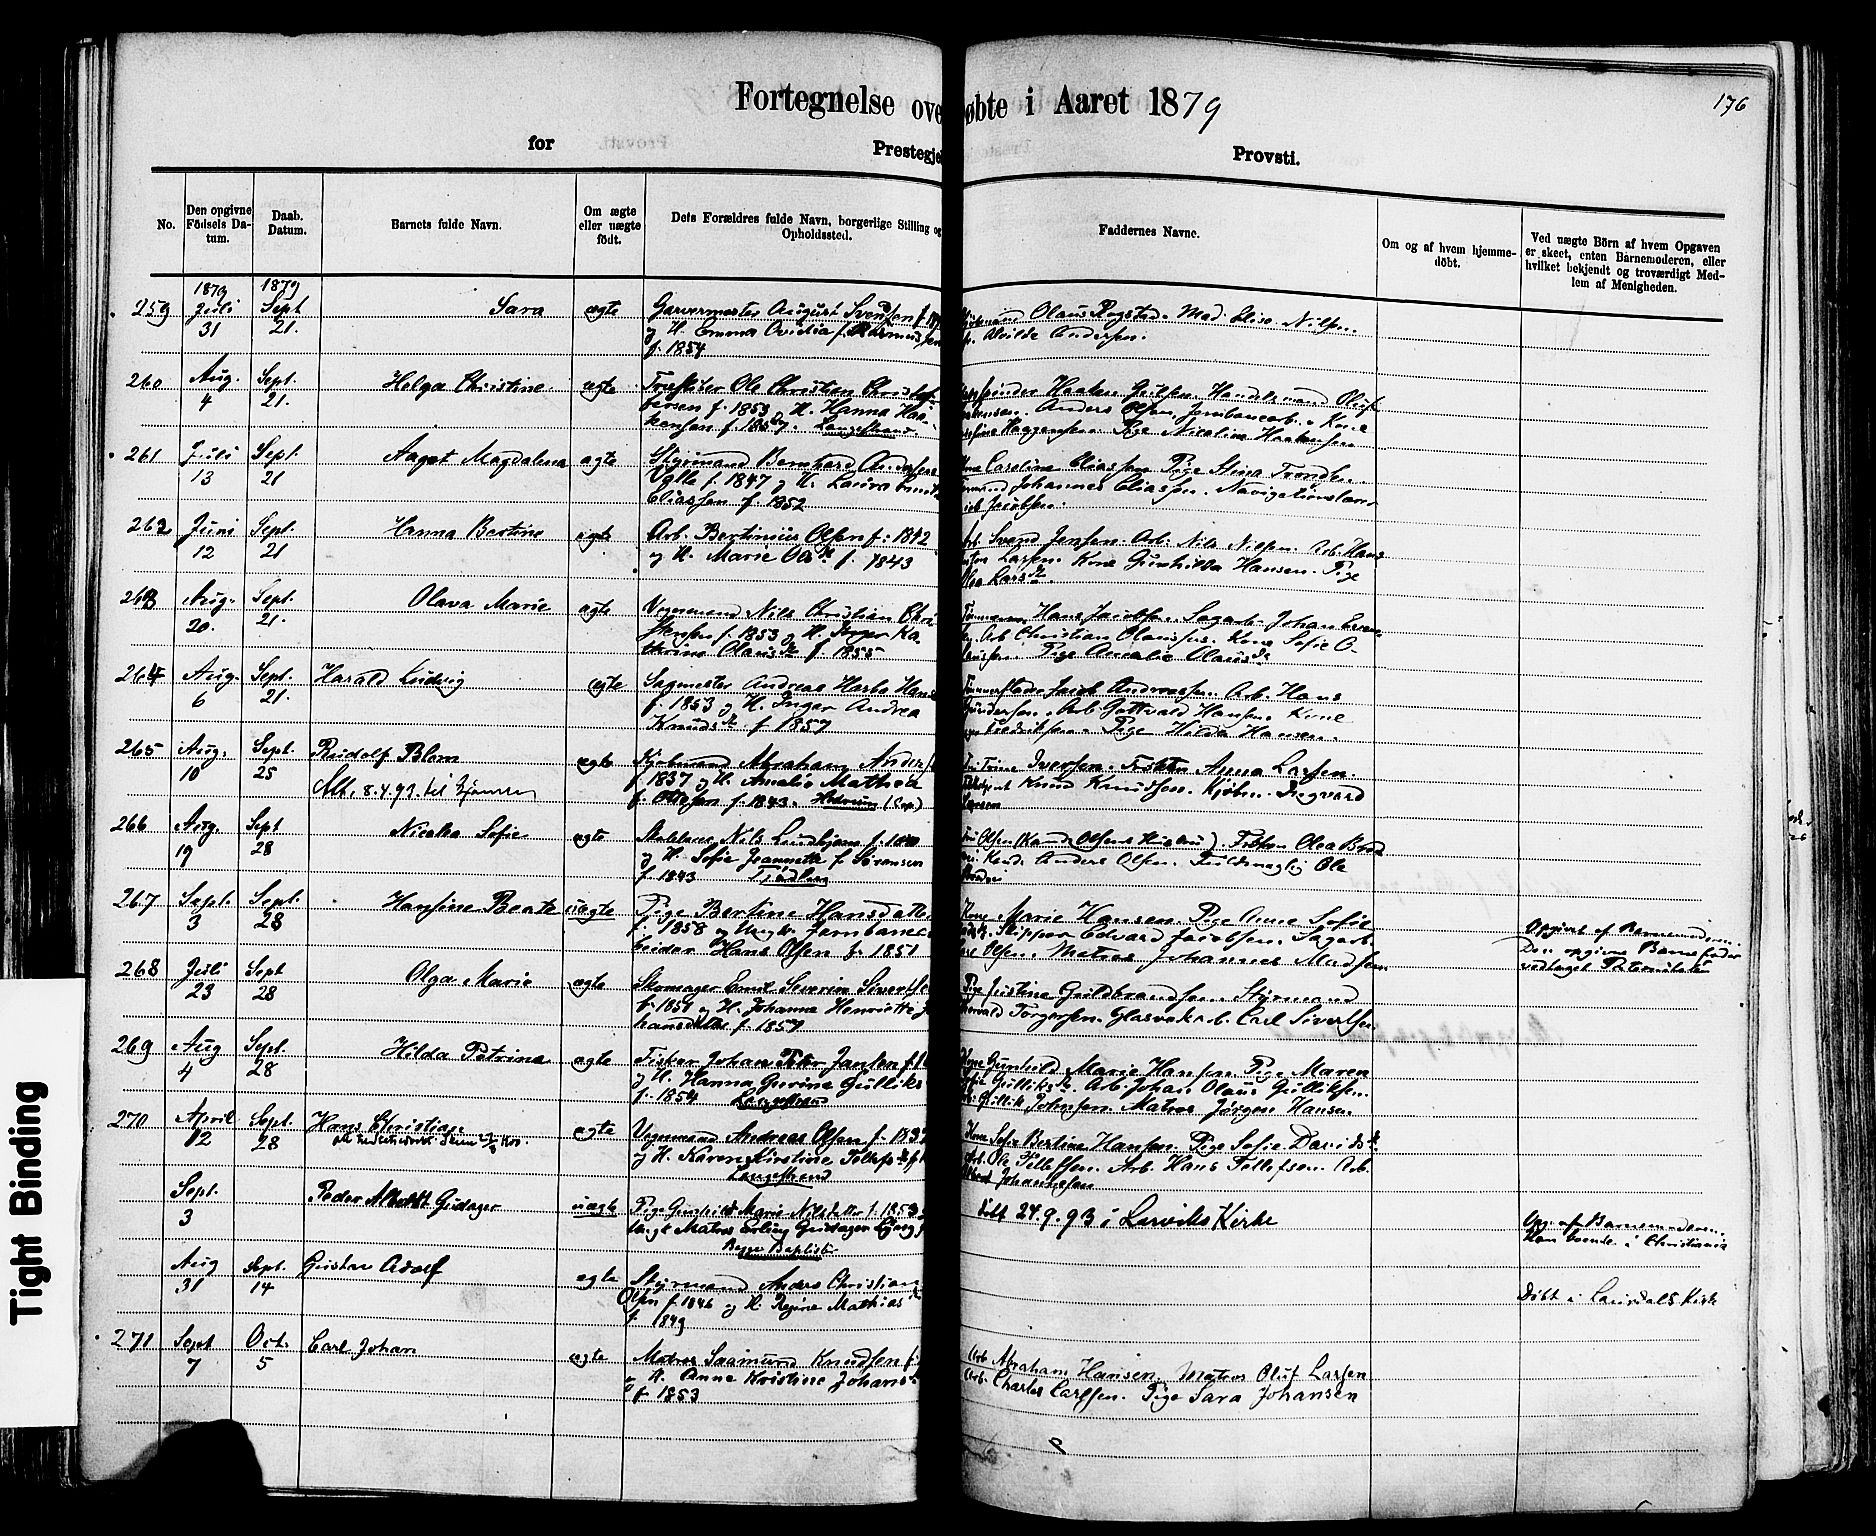 Fortegnelse ove øbte i Aaret 1879
176
for Prestegje Provsti.
No.
Den opgivne Födsels Da-tum.
Daab. Datum.
Barnets fulde Navn.
Om ægte eller uægte födt.
Dets Forældres fulde Navn, borgerlige Stilling og Opholdssted.
Faddernes Navne.
Om og af hvem hjemme-döbt.
Ved uægte Börn af hvem Opgaven er skeet, enten Barnemoderen, eller hvilket bekjendt og troværdigt Med-lem af Menigheden.
1879 1879
259 Juli 31 Sept 21. Sara ægte Garvermester August Svensen f.
og H. Emma Ovidia Rasmussen
f. 1854
Olaus Rogstad. Mad. Elise Nilsen.
Alvilde Andersen.
260 Aug. 4 Sept. 21. Helga Christine ægte Træsliber Ole Christian Christof
fersen f. 1853 og H. Hanna Haa
kensen f. 1857. Langestrand.
Haaken Gulsen. Handelsmand Oluf
Anders Olsen, Jernbanearb. Kone
Haagensen. Pige Nicoline Haakensen
261 Juli 13 Sept. 21 Aagot Magdalena ægte Styrmand Bernhard Andersen
f. 1847 og H. Laura
Eliassen f. 1852
Caroline Eliassen Pige Stina Trondsen
Johannes Eliassen. Navigationslærer
Jacobsen.
262 Juni 12 Sept. 21 Hanna Bertine ægte Arb. Bertinius Olsen f. 1842
og H. Marie Olsdt f. 1843
Svend Jensen. Arb. Nils Nilsen. Arb. Hans
Larsen. Kone Gunhilda Hansen. Pige
Olea Larsdt.
263 Aug. 20. Sept. 21. Olava Marie ægte Vognmand Nils Christian Chri
stensen f. 1853 og H. Inger Ka
thrine Olausdt f. 1855
Tömmerm. Hans Jacobsen. Sagarb. Johan
Arb Christian Olaussen. Kone Sofie O
laussen. Pige Amalie Olausdt
264 Aug. 6 Sept. 21. Harald Ludvig ægte Sagmester Andreas Herbo Hans
f. 1853 og H. Inger Andrea
Knudsdt. f. 1857
Jacob Andreassen. Arb. Hans
Gundersen. Arb Gottvald Hansen. Kone
Fredriksen. Pige Hilda Hansen.
265 Aug. 10 Sept. 25 Rudolf Blom ægte Kjøbmand Abraham Anders
f. 1837 og H. Amalie Mathea
Ottesen f. 1843. Hedrum (Sogn)
Att. 8.4.92 til
Trine Iversen. Frøken Anna Larsen.
Knud Knudsen. Kjøbm. Ingvard
Larsen
266 Aug. 19 Sept 28 Nicoka Sofie ægte Nils Lindhjem f.
og H. Sofie Jeannette f Sørensen
f. 1843
Fru Olsen (Kand. Olsens Hustru). Frøken Olea
Kand. Anders Olsen. Fuldmægtig Ole
267 Sept. 3 Sept. 28 Hansine Beate uægte Pige Bertine Hansdatter
f. 1858 og Ungk. Jernbanear
beider Hans Olsen f. 1851
Kone Marie Hansen. Pige Anne Sofie
Skipper Edvard Jacobsen. Sagarb.
Olsen. Matros Johannes Madsen
Opgivet af Barnemoderen.
Den opgivne Barnefader
vedtaget Paterniteten
268 Juli 23 Sept 28 Olga Marie ægte Skomager Emil Severin Sivertsen
f. 1851 og H. Johanne Henriette J
hansdatter f. 1857
Pige Justine Guldbrandsen. Styrmand
Torgersen. Glasværksarb. Carl Sivertsen
269 Aug 4 Sept. 28 Hilda Petrine ægte Fisker Johan Peter Jansen f.
og H. Hanna Gurine Gulliks
f. 1854 Langestrand
Kone Gunhild Marie Hansen. Pige Maren
Sofie Gulliksdt. Arb. Johan Olaus Gulliksen.
Gullik Johnsen. Matros Jørgen Hansen.
270 April 12 Sept. 28 Hans Christian ægte Vognmand Andreas Olsen f. 1837
og H. Karen Kirstine Tollefsdt f.
Langestrand
Kone Sofie Bertine Hansen. Pige Sofie Davidsdt
Arb. Ole Tellefsen. Arb. Hans Tellefsen. Arb.
Johannesen
Sept. 3 Peder Albert Gudager uægte Pige Gunhild Marie Nilsdatter f. 1853
Ungk. Matros Erling Gudager
Begge Baptister
Døbt 24.9.93 i Larviks Kirke
Opg. af Barnemoderen.
Han boende i Christiania
Aug 31 Sept. 14 Gustav Adolf ægte Styrmand Anders Christian
Olsen f. 1846 og H. Regine Mathiasdt
f. 1849
Døbt i Laurdals Kirke
271 Sept 7 Oct. 5 Carl Johan ægte Matros Saamund Knudsen f.
og H. Anne Kristine Johansdt
f. 1853
Arb Abraham Hansen. Matros Oluf Larsen
Arb. Charles Carlsen. Pige Sara Johansen
Tight Binding